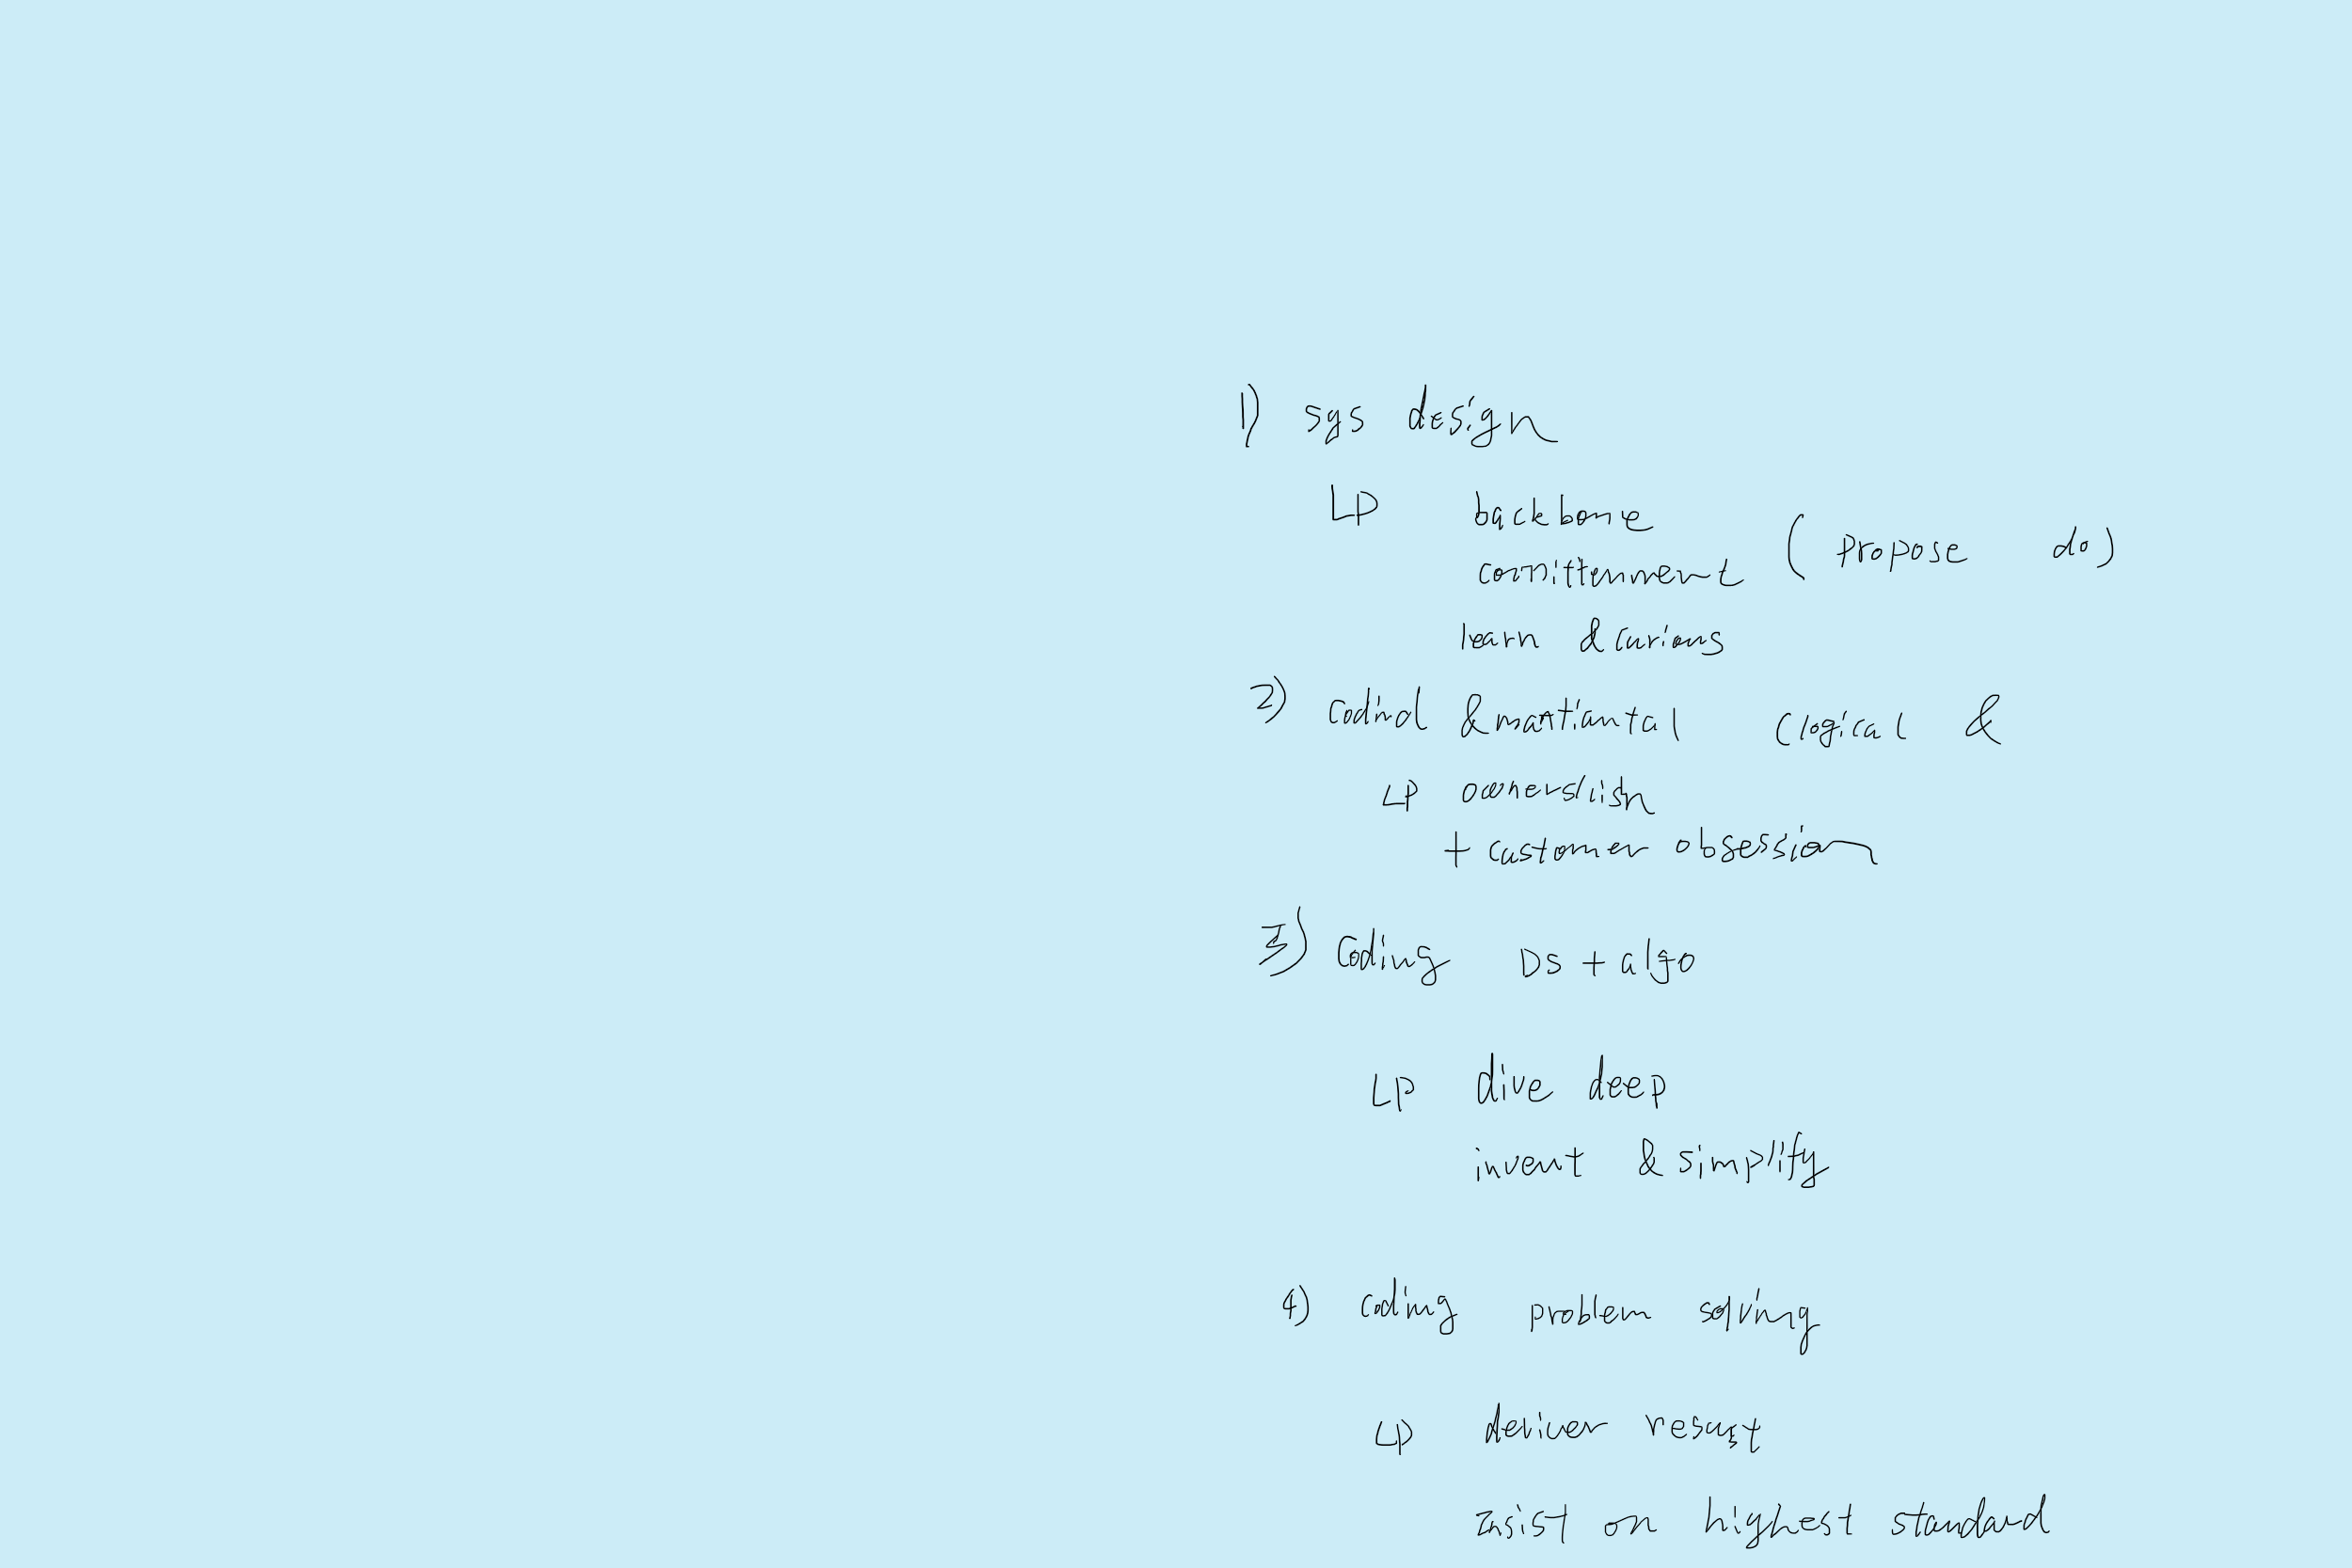 1) sys design
LP backbone
comittenment (propose do)
learn & curious
2) codind & mantiantal (logical &
LP ownership
+ customer obsession
3) coding DS + algo
LP dive deep
invent & simplify
4) coding problem solving
LP deliver result
Insist on highest standard